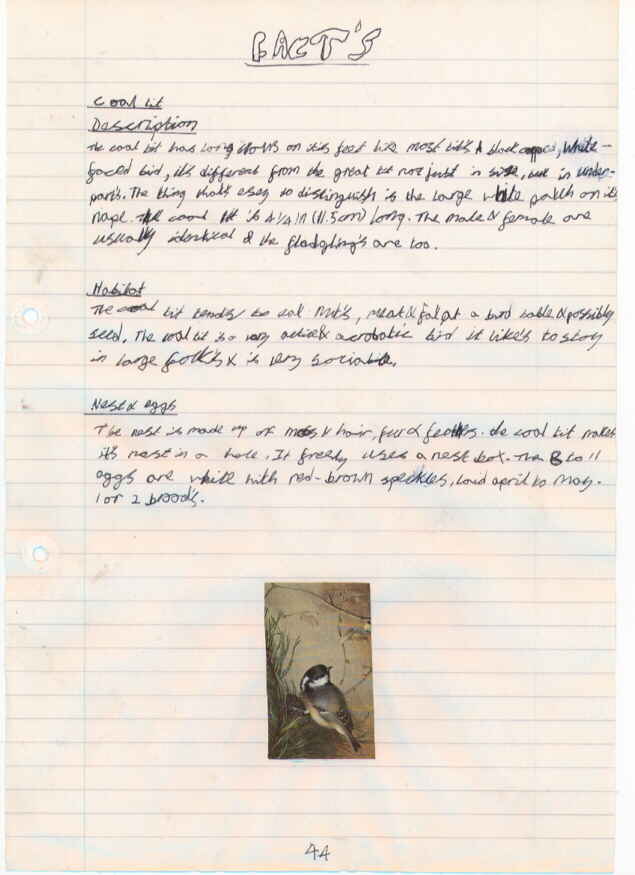 FACT'S
Coal tit
Description
The coal tit has long claws on it's feet like most tits A black capped, white-
faced bird, it's different from the great tit not just in size, but in under-
parts. The thing that's easy to distinguish is the large white patch on it's
nape. The coal tit is 4 1/4 in (11.5cm) long. The male & female are
usually identical & the fledgling's are too.
Habitat
The coal tit tends to eat nuts, meat & fat at a bird table & possibly
seed. The coal tit is a very active & acrobatic bird it like's to stay
in large flocks & is very sociable.
Nest & eggs
The nest is made up of moss & hair, fur & feathers. The coal tit makes
it's nest in a hole. It freely uses a nest box. The 8 to 11
eggs are white with red-brown speckles, laid april to may.
1 or 2 brood's.
44